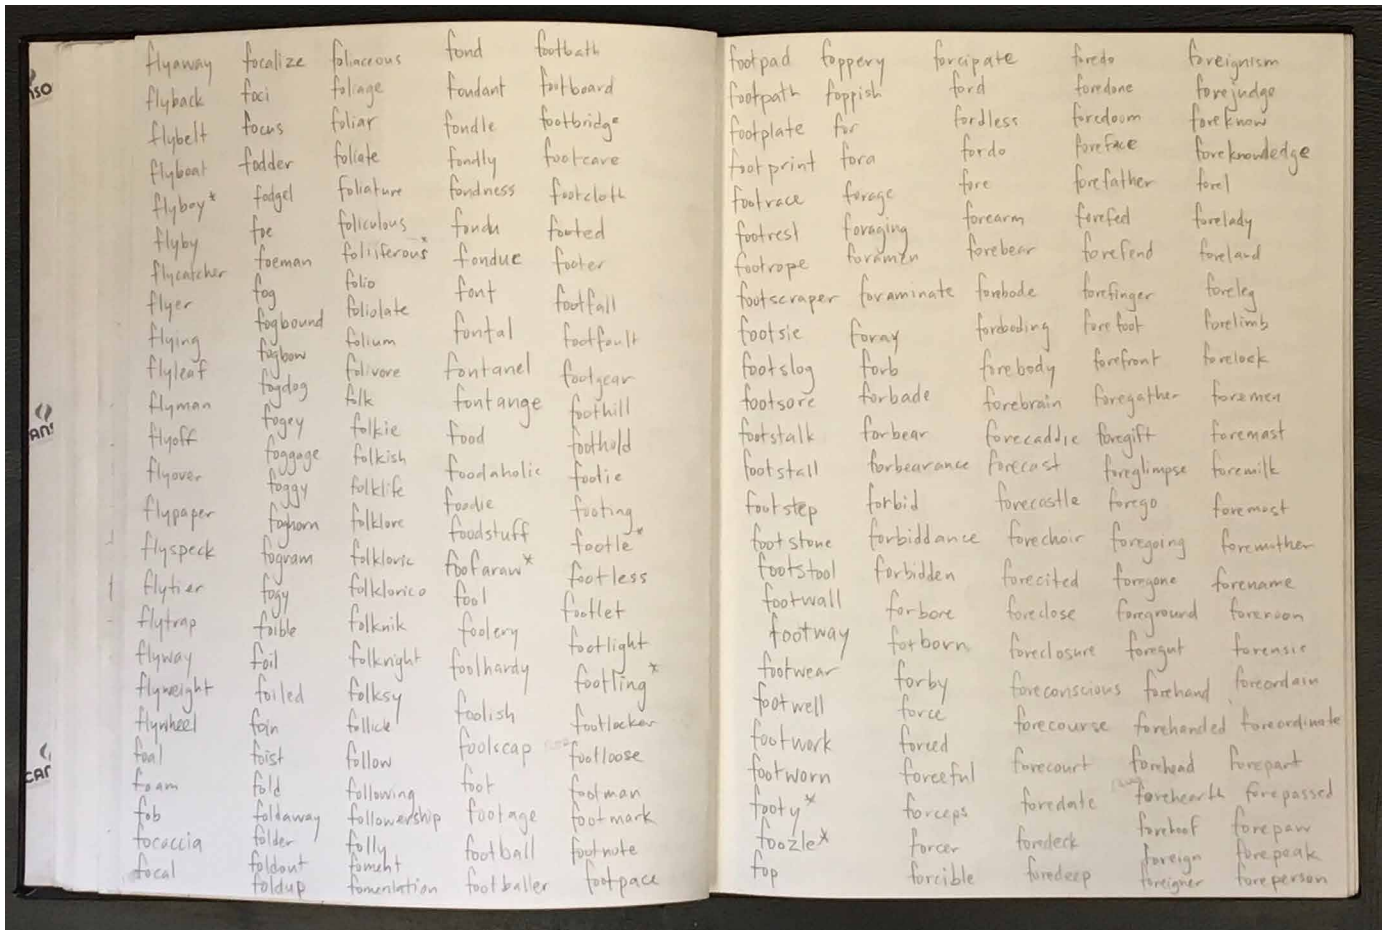 flyaway
flyback
flybelt
flyboat
flyboy*
flyby
flycatcher
flyer
flying
flyleaf
flyman
flyoff
flyover
flypaper
flyspeck
flytier
flytrap
flyway
flyweight
flywheel
foal
foam
fob
focaccia
focal
focalize
foci
focus
fodder
fodgel
foe
foeman
fog
fogbound
fogbow
fogdog
fogey
foggage
foggy
foghorn
fogram
fogy
foible
foil
foiled
foin
foist
fold
foldaway
folder
foldout
foldup
foliaceous
foliage
foliar
foliate
foliature
foliculous
foliiferous*
folio
foliolate
folium
folivore
folk
folkie
folkish
folklife
folklore
folkloric
folklorico
folknik
folknight
folksy
follick
follow
following
followership
folly
foment
fomentation
fond
fondant
fondle
fondly
fondness
fondu
fondue
font
fontal
fontanel
fontange
food
foodaholic
foodie
foodstuff
foofaraw*
fool
foolery
foolhardy
foolish
foolscap
foot
footage
football
footballer
footbath
footboard
footbridge
footcare
footcloth
footed
footer
footfall
footfault
footgear
foothill
foothold
footie
footing
footle*
footless
footlet
footlight
footling*
footlocker
footloose
footman
footmark
footnote
footpace
footpad
footpath
footplate
footprint
footrace
footrest
footrope
footscraper
footsie
footslog
footsore
footstalk
footstall
footstep
footstone
footstool
footwall
footway
footwear
footwell
footwork
footworn
footy*
foozle*
fop
foppery
foppish
for
fora
forage
foraging
foramen
foraminate
foray
forb
forbade
forbear
forbearance
forbid
forbiddance
forbidden
forbore
forborn
forby
force
forced
forceful
forceps
forcer
forcible
forcipate
ford
fordless
fordo
fore
forearm
forebear
forebode
foreboding
forebody
forebrain
forecaddie
forecast
forecastle
forechoir
forecited
foreclose
foreclosure
foreconscious
forecourse
forecourt
foredate
foredeck
foredeep
foredo
foredone
foredoom
foreface
forefather
forefed
forefend
forefinger
forefoot
forefront
foregather
foregift
foreglimpse
forego
foregoing
foregone
foreground
foregut
forehand
forehanded
forehead
forehearth
forehoof
foreign
foreigner
foreignism
forejudge
foreknow
foreknowledge
forel
forelady
foreland
foreleg
forelimb
forelock
foremen
foremast
foremilk
foremost
foremother
forename
forenoon
forensic
foreordain
foreordinate
forepart
forepassed
forepaw
forepeak
foreperson